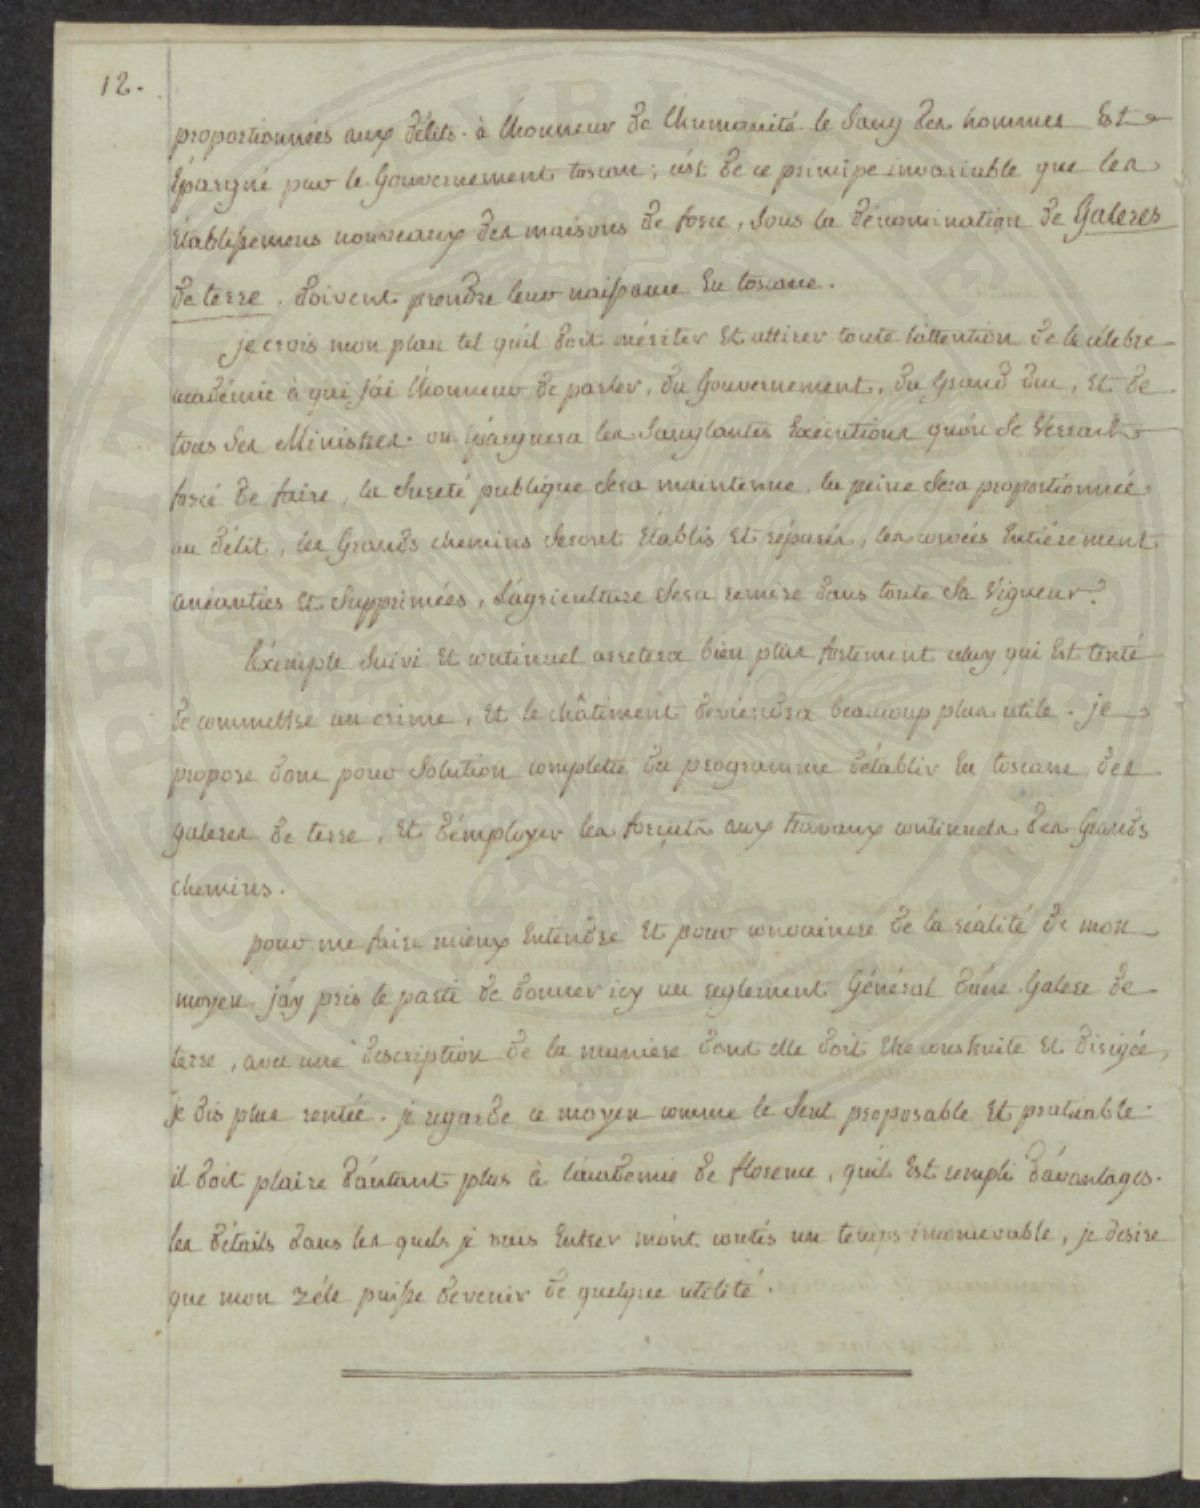 12.
proportionnées aux délits. à l'honneur de l'humanité le sang des hommes Est
Epargné par le Gouvernement toscan; c'est de ce principe invariable que les
établissemens nouveaux des maisons de force, sous la dénomination de Galeres
de terre, doivent prendre leur naissance En toscane.
je crois mon plan tel qu'il doit mériter Et attirer toute l'attention de la célebre
académie à qui j'ai l'honneur de parler, du Gouvernement, du Grand duc, Et de
tous ses Ministres. on épargnera les sanglantes Exécutions qu'on se Verrait
forcé de faire, la sureté publique sera maintenue, la peine sera proportionnée
au délit, les Grands chemins seront Etablis Et réparés, les corvées Entiérement
anéanties Et supprimées, l'agriculture sera remise dans toute sa Vigueur.
l'Exemple suivi Et continuel arretera bien plus fortement celuy qui Est tenté
de commettre un crime, Et le châtiment deviendra beaucoup plus utile. je
propose donc pour solution complette du programme d'établir En toscane des
galeres de terre, Et d'émployer les forçats aux travaux continuels des Grands
chemins.
pour me faire mieux Entendre Et pour convaincre de la réalité de mon
moyen j'ay pris le parti de donner icy un reglement Général d'une Galere de
terre, avec une description de la maniere dont elle doit Etre construite Et dirigée,
je dis plus rentée. je regarde ce moyen comme le seul proposable Et praticable.
il doit plaire d'autant plus à l'académie de florence, qu'il Est rempli d'avantages.
les détails dans les quels je vais Entrer m'ont coutés un temps inconcevable, je desire
que mon zéle puisse devenir de quelque utilité.
SPERIENZE
PVBLICE